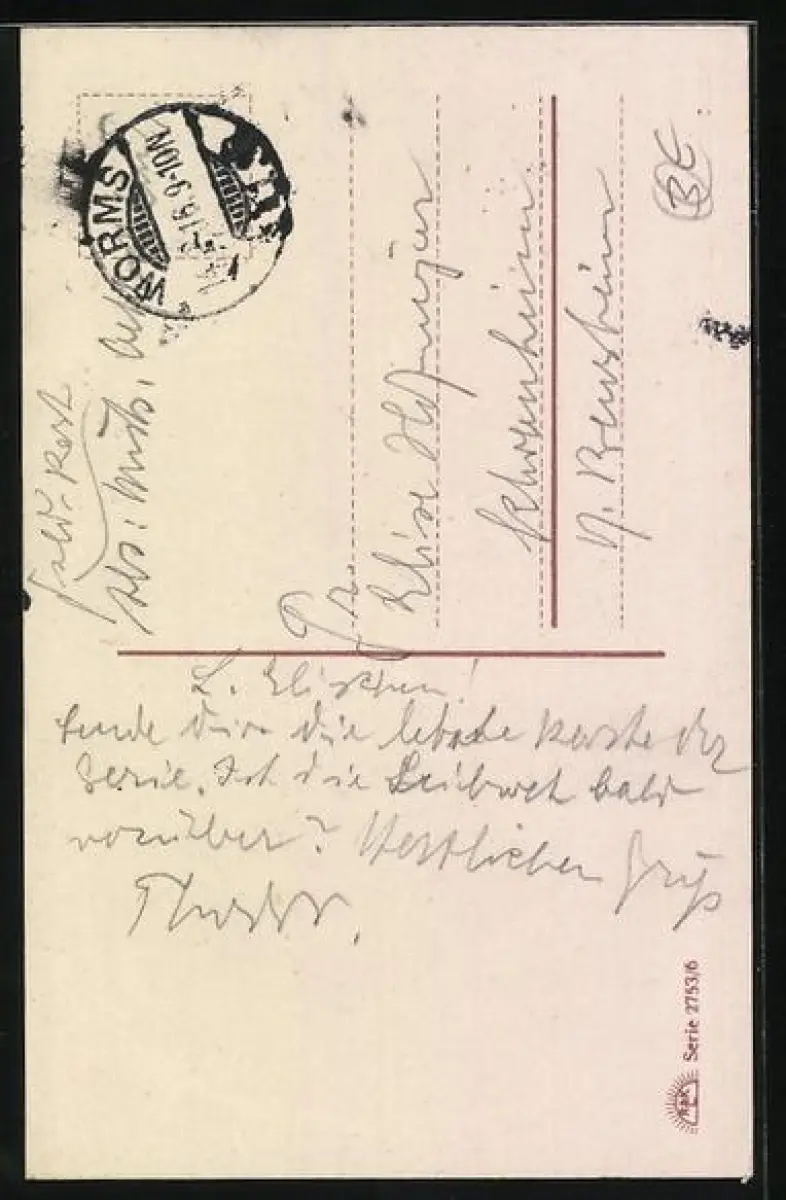 WORMS
16.9-10N
Feld-Post
Abs:
Frl.
Elise
Schwanheim
b. Bensheim
BE
L. Elischen!
Sende Dir die letzte Karte der
Serie. Ist die Leibweh bald
vorüber? Herzlichen Gruß
Theodor.
Serie 2753/6